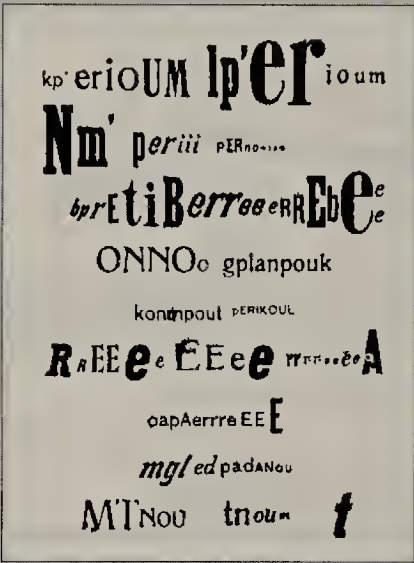 kp' erioUM lp'er ioum
Nm' periii pERnoooo
bprEtiBerreeeRREbEe e e
ONNOo gplanpouk
konmpout pERIKOUL
RREEeeEEeee rrrrrooeeeA
oapAerrreEEE
mgl ed padANou
MTNou tnoum t